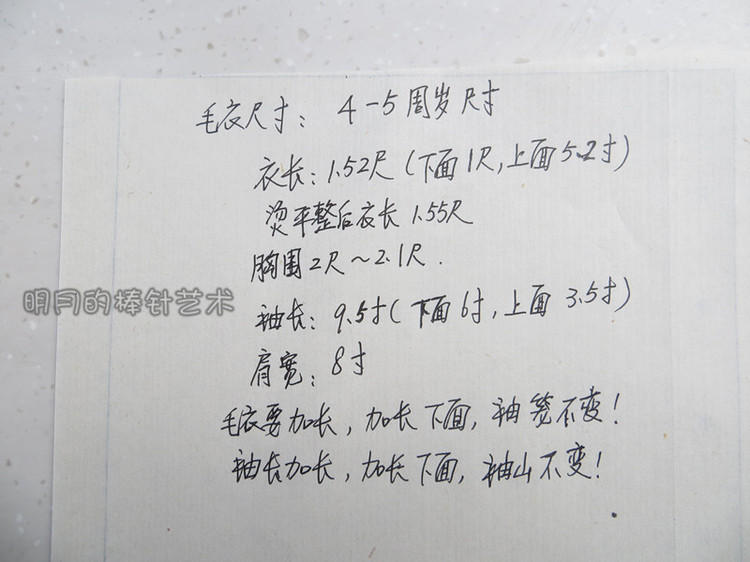 毛衣尺寸： 4-5周岁尺寸
衣长：1.52尺（下面1尺，上面5.2寸）
烫平整后衣长1.55尺
胸围2尺～2.1尺．
明月的棒针艺术
袖长：9.5寸（下面6寸，上面3.5寸）
肩宽：8寸
毛衣要加长，加长下面，袖笼不变！
袖长加长，加长下面，袖山不变！